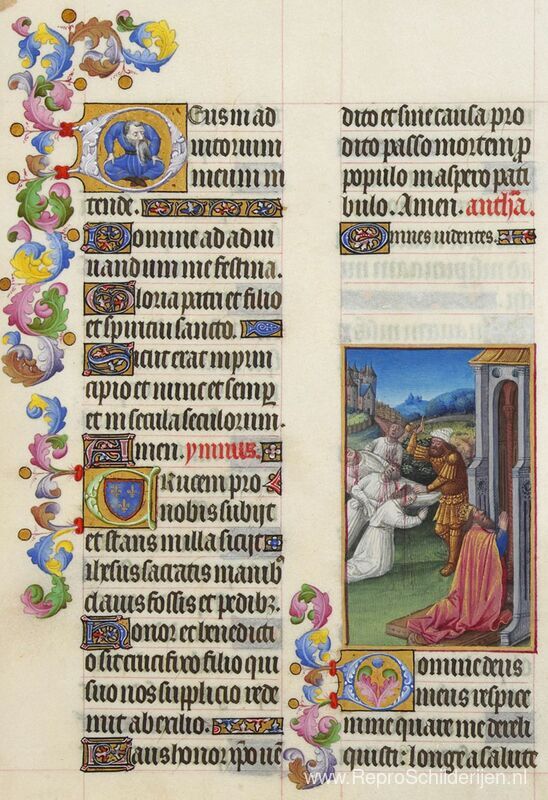 Deus in ad
iutorium
meum in
tende.
Domine ad adiu
uandum me festina.
Gloria patri et filio
et spiritui sancto.
Sicut erat in prin
cipio et nunc et semp
et in secula seculorum.
Amen. ymnus.
Crucem pro
nobis subijt
et stans in illa sicijt
ihesus sacratis manib
clauis fossis et pedibz.
Honor et benedicti
o sit crucifixo filio qui
suo nos supplicio rede
mit ab exilio.
Laus honor xpo uen
dito et sine causa pro
dito passo mortem p
populo in aspero pati
bulo. Amen. antha.
Omnes uidentes.
Domine deus
meus respice
in me quare me dereli
quisti: longe a salute
www.ReproSchilderijen.nl